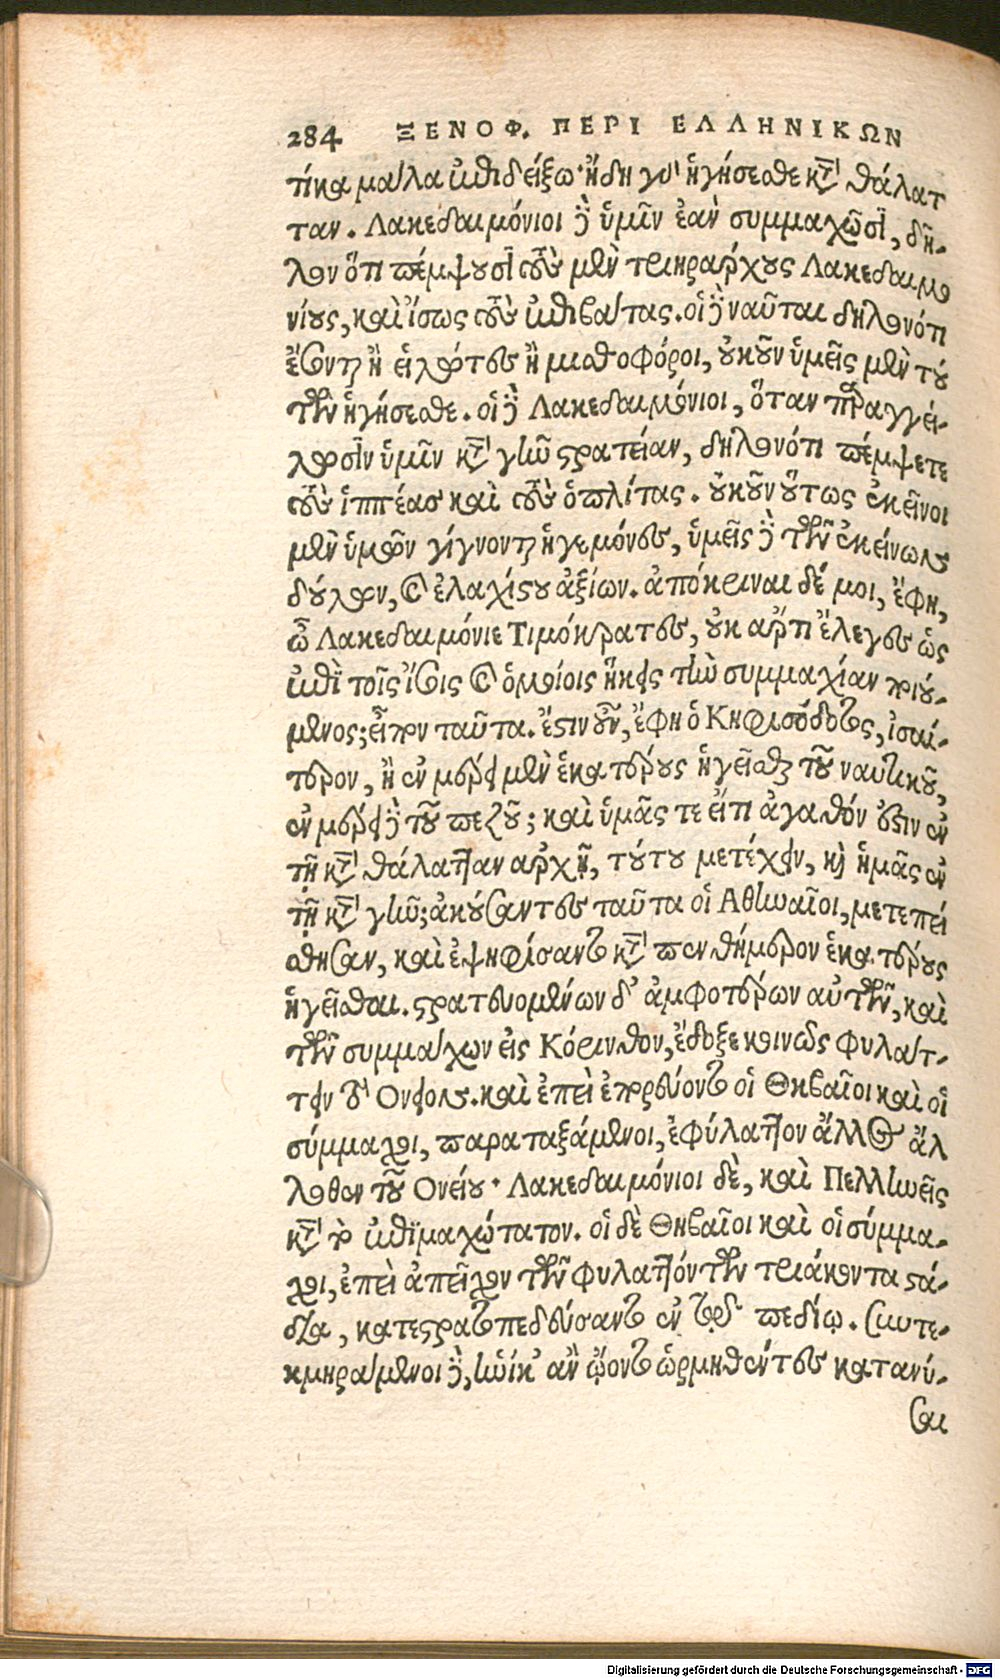 284 ΞΕΝΟΦ. ΠΕΡΙ ΕΛΛΗΝΙΚΩΝ
τίκα μάλα ἐπιδείξω· ἤδη γὰρ ἡγήσεσθε κατὰ θάλατ
ταν. Λακεδαιμόνιοι δὲ ὑμῖν ἐὰν συμμαχῶσι, δῆ-
λον ὅτι πέμψουσι τοὺς μὲν τριηράρχους Λακεδαιμο
νίους, καὶ ἴσως τοὺς ἐπιβάτας. οἱ δὲ ναῦται δηλονότι
ἔσονται ἢ εἱλότες ἢ μισθοφόροι, οὐκοῦν ὑμεῖς μὲν τού
των ἡγήσεσθε. οἱ δὲ Λακεδαιμόνιοι, ὅταν παραγγεί-
λωσιν ὑμῖν κατὰ γῆν στρατείαν, δηλονότι πέμψετε
τοὺς ἱππέας καὶ τοὺς ὁπλίτας. οὐκοῦν οὕτως ἐκεῖνοι
μὲν ὑμῶν γίγνονται ἡγεμόνες, ὑμεῖς δὲ τῶν ἐκείνων
δούλων, καὶ ἐλαχίστου ἀξίων. ἀπόκριναι δέ μοι, ἔφη,
ὦ Λακεδαιμόνιε Τιμόκρατες, οὐκ ἄρτι ἔλεγες ὡς
ἐπὶ τοῖς ἴσοις καὶ ὁμοίοις ἥκεις τὴν συμμαχίαν ποιού-
μενος; εἶπον ταῦτα. ἔστιν οὖν, ἔφη ὁ Κηφισόδοτος, ἰσαί-
τερον, ἢ ἐν μέρει μὲν ἑκατέρους ἡγεῖσθαι τοῦ ναυτικοῦ,
ἐν μέρει δὲ τοῦ πεζοῦ; καὶ ὑμᾶς τε εἴ τι ἀγαθόν ἐστιν ἐν
τῇ κατὰ θάλατταν ἀρχῇ, τούτου μετέχειν, καὶ ἡμᾶς ἐν
τῇ κατὰ γῆν; ἀκούσαντες ταῦτα οἱ Ἀθηναῖοι, μετεπεί
σθησαν, καὶ ἐψηφίσαντο κατὰ πενθήμερον ἑκατέρους
ἡγεῖσθαι. στρατευομένων δ' ἀμφοτέρων αὐτῶν, καὶ
τῶν συμμάχων εἰς Κόρινθον, ἔδοξε κοινῶς φυλάτ-
τειν τὸ Ονειον. καὶ ἐπεὶ ἐπορεύοντο οἱ Θηβαῖοι καὶ οἱ
σύμμαχοι, παραταξάμενοι, ἐφύλαττον ἄλλος ἄλ
λοθεν τοῦ Ονείου· Λακεδαιμόνιοι δὲ, καὶ Πελληνεῖς
κατὰ τὸ ἐπιμαχώτατον. οἱ δὲ Θηβαῖοι καὶ οἱ σύμμα-
χοι, ἐπεὶ ἀπεῖχον τῶν φυλαττόντων τριάκοντα στά-
δια, κατεστρατοπεδεύσαντο ἐν τῷ πεδίῳ. συντε-
κμηράμενοι δὲ, ἡνίκ' ἂν ᾤοντο ὡρμηθέντες κατανύ-
σαι
Digitalisierung gefördert durch die Deutsche Forschungsgemeinschaft - DFG